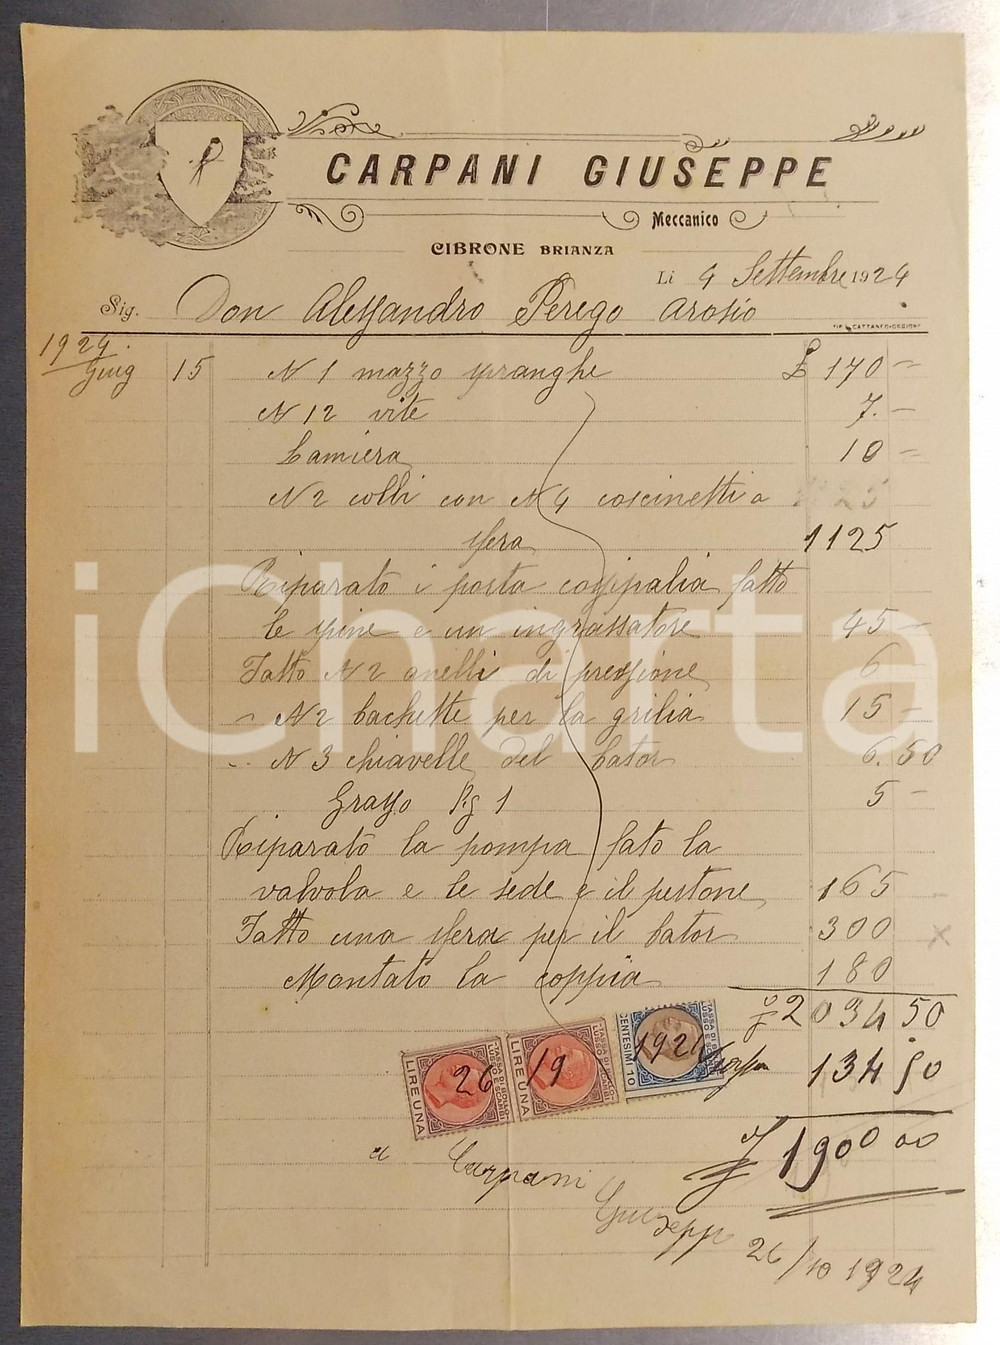 CARPANI GIUSEPPE
Meccanico
CIBRONE BRIANZA
Li 4 Settembre 1924
Sig. Don Alessandro Perego Arosio
1924
Giug 15 N 1 mazzo spranghe £ 170 -
N 12 vite 7. -
Lamiera 10 -
N 2 colli con N 4 coscinetti a
sfera 1125
Riparato i posta fatto
le spine e un ingrassatore 45 -
Fatto N 2 anelli di pressione 6 -
" N 2 bachette per la grilia 15 -
" N 3 chiavelle del bator 6.50
Grasso Kg 1 5 -
Riparato la pompa fato la
valvola e le sede e il pestone 165
Fatto una sfera per il bator 300
Montato la coppia 180
£ 2034 50
134 50
£ 1900 00
TASSA DI BOLLO
LUSSO E SCAMBI
LIRE UNA
TASSA DI BOLLO
LUSSO E SCAMBI
LIRE UNA
TASSA DI BOLLO
LUSSO E SCAMBI
CENTESIMI 10
26 / 19 1924
Carpani
Giuseppe
26/10 1924
iCharta